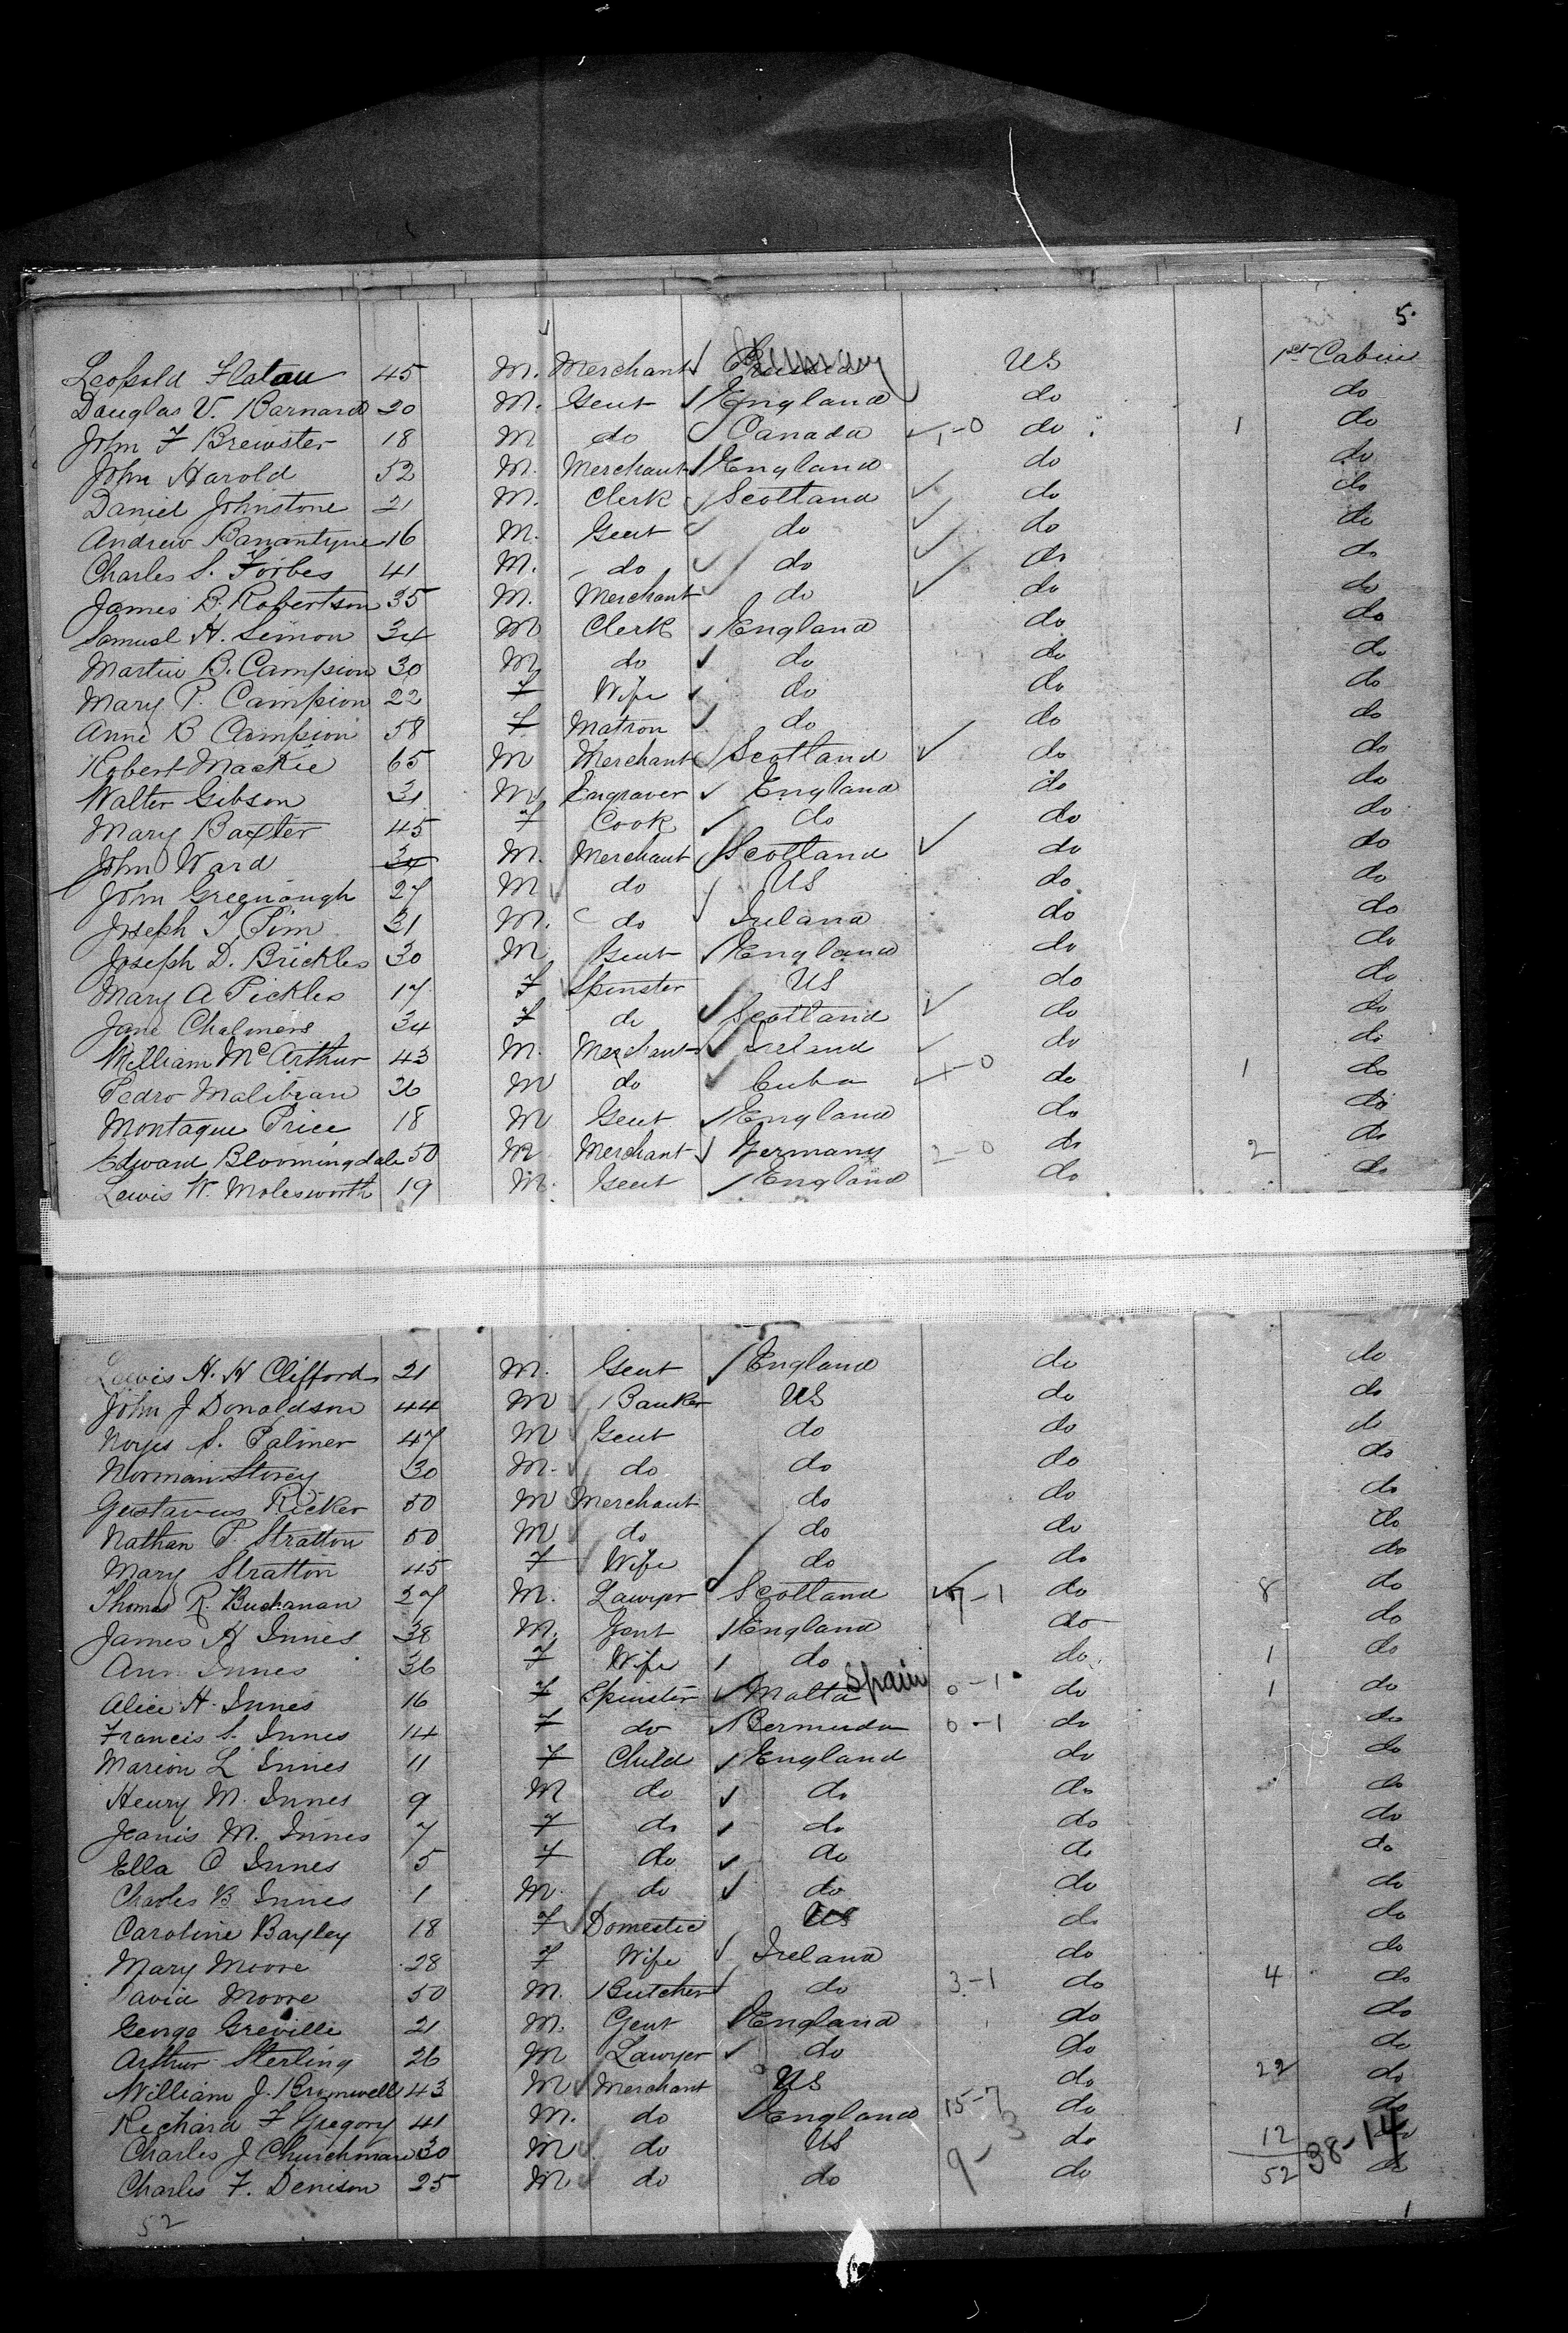 5.
Leopold Flatau 45 M. Merchant Prussia Germany US 1st Cabin
Douglas V. Barnard 20 M. Gent England do do
John F Brewster 18 M do Canada 1-0 do 1 do
John Harold 52 M. Merchant England do do
Daniel Johnstone 21 M. Clerk Scotland do do
Andrew Banantyne 16 M. Gent do do do
Charles S. Forbes 41 M. do do do do
James B. Robertson 35 M. Merchant do do do
Samuel H. Simon 34 M Clerk England do do
Martin B. Campion 30 M do do do do
Mary P. Campion 22 F Wife do do do
Anne B Campion 58 F Matron do do do
Robert Mackie 65 M Merchant Scotland do do
Walter Gibson 31 M Engraver England do do
Mary Baxter 45 F Cook do do do
John Ward 34 M. Merchant Scotland do do
John Greenough 27 M do US do do
Joseph T Pim 31 M. do Ireland do do
Joseph D. Brickles 30 M Gent England do do
Mary A Pickles 17 F Spinster US do do
Jane Chalmers 34 F do Scotland do do
William McArthur 43 M. Merchant Ireland do do
Pedro Malibran 36 M do Cuba 1-0 do 1 do
Montague Price 18 M Gent England do do
Edward Bloomingdale 50 M Merchant Germany 2-0 do 2 do
Lewis W. Molesworth 19 M. Gent England do do
Lewis H. H Clifford 21 M. Gent England do do
John J Donaldson 44 M Banker US do do
Noyes S. Palmer 47 M Gent do do do
Norman Storey 30 M. do do do do
Gustavus Ricker 50 M Merchant do do do
Nathan P. Stratton 50 M do do do do
Mary Stratton 45 F Wife do do do
Thomas R. Buchanan 27 M. Lawyer Scotland 7-1 do 8 do
James H Innes 38 M. Gent England do do
Ann Innes 36 F Wife do do 1 do
Alice H. Innes 16 F Spinster Malta Spain 0-1 do 1 do
Francis S. Innes 14 F do Bermuda 0-1 do do
Marion L Innes 11 F Child England do do
Henry M. Innes 9 M do do do do
Jeanis M. Innes 7 F do do do do
Ella C Innes 5 F do do do do
Charles B Innes 1 M. do do do do
Caroline Bayley 18 F Domestic US do do
Mary Moore 28 F Wife Ireland do do
David Moore 50 M. Butcher do 3-1 do 4 do
George Greville 21 M. Gent England do do
Arthur Sterling 26 M Lawyer do do do
William J. Brumwell 43 M Merchant US do 22 do
Richard F Gregory 41 M. do England 15-7 do do
Charles J Churchman 30 M do US 9-3 do 12 38-14 do
Charles F. Denison 25 M do do do 52 do
52 1